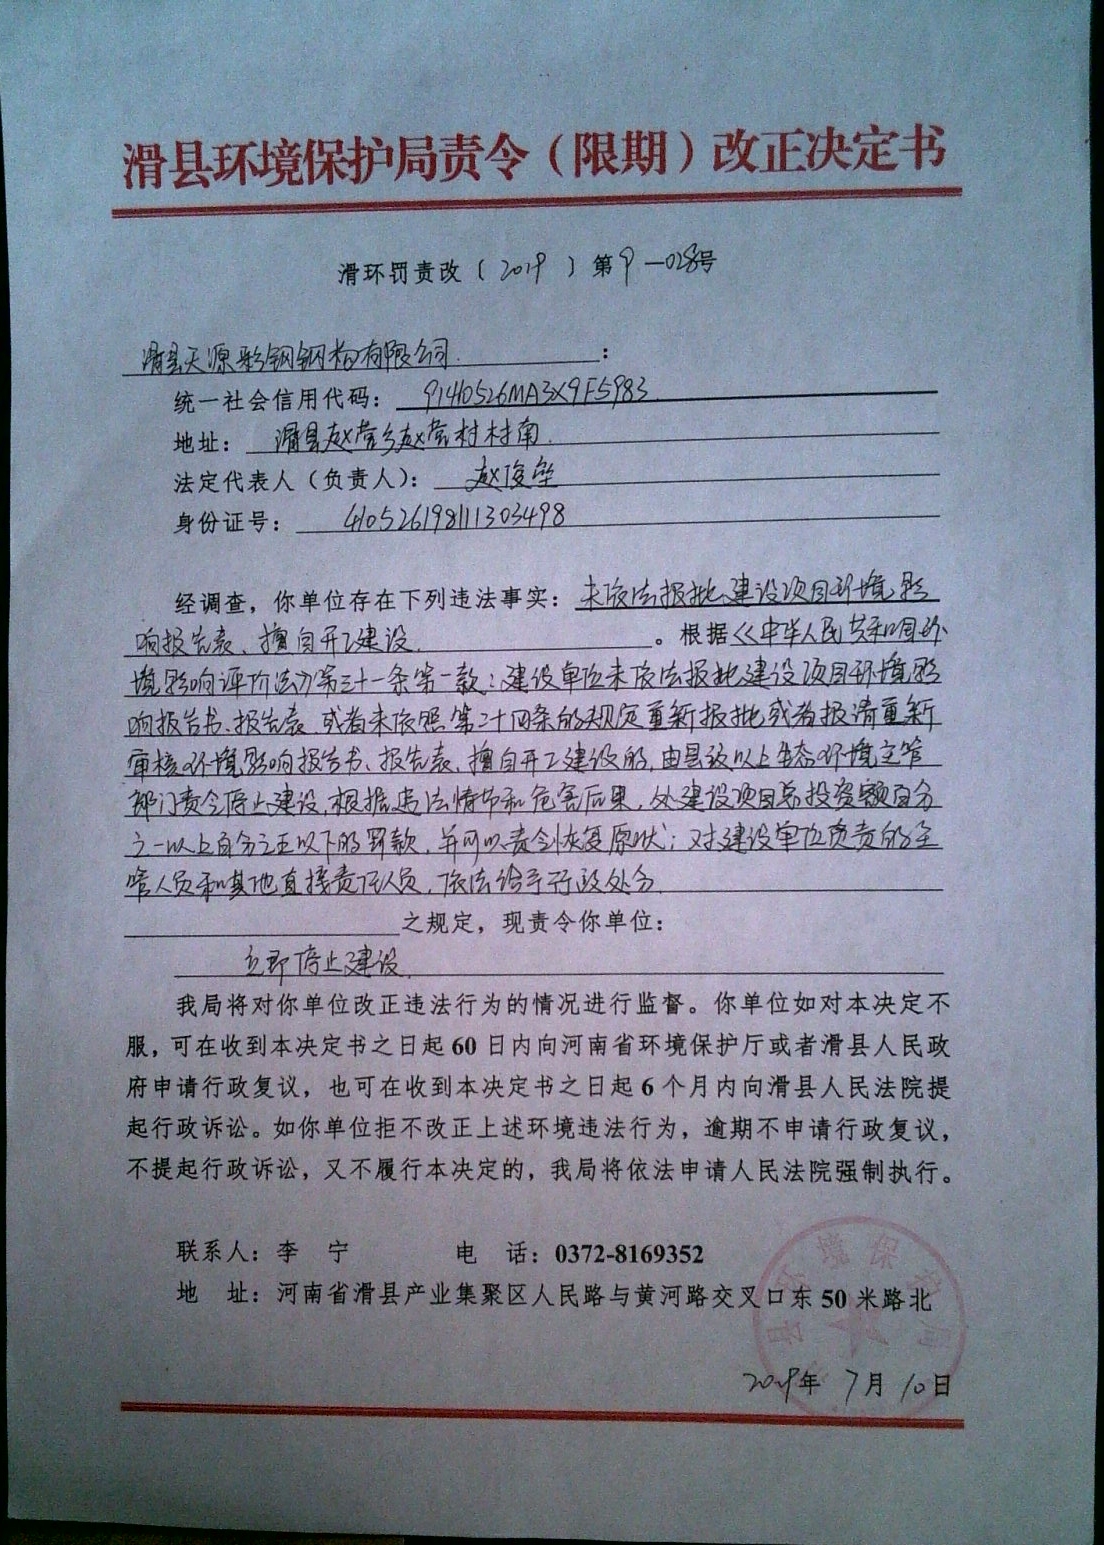 滑县环境保护局责令（限期）改正决定书
滑环罚责改（2019）第9—028号
滑县天源彩钢钢构有限公司：
统一社会信用代码：91410526MA3X9F5983
地址：滑县赵营乡赵营村村南
法定代表人（负责人）：赵俊
身份证号：410526198111303498
经调查，你单位存在下列违法事实：未依法报批建设项目环境影
响报告表、擅自开工建设。根据《中华人民共和国环
境影响评价法》第三十一条第一款：建设单位未依法报批建设项目环境影
响报告书、报告表，或者未依照第二十四条的规定重新报批或者报请重新
审核环境影响报告书、报告表，擅自开工建设的，由县级以上生态环境主管
部门责令停止建设，根据违法情节和危害后果，处建设项目总投资额百分
之一以上百分之五以下的罚款，并可以责令恢复原状；对建设单位负责的主
管人员和其他直接责任人员，依法给予行政处分
之规定，现责令你单位：
立即停止建设
我局将对你单位改正违法行为的情况进行监督。你单位如对本决定不
服，可在收到本决定书之日起60日内向河南省环境保护厅或者滑县人民政
府申请行政复议，也可在收到本决定书之日起6个月内向滑县人民法院提
起行政诉讼。如你单位拒不改正上述环境违法行为，逾期不申请行政复议，
不提起行政诉讼，又不履行本决定的，我局将依法申请人民法院强制执行。
联系人：李 宁 电 话：0372-8169352
地 址：河南省滑县产业集聚区人民路与黄河路交叉口东50米路北
2019年7月10日